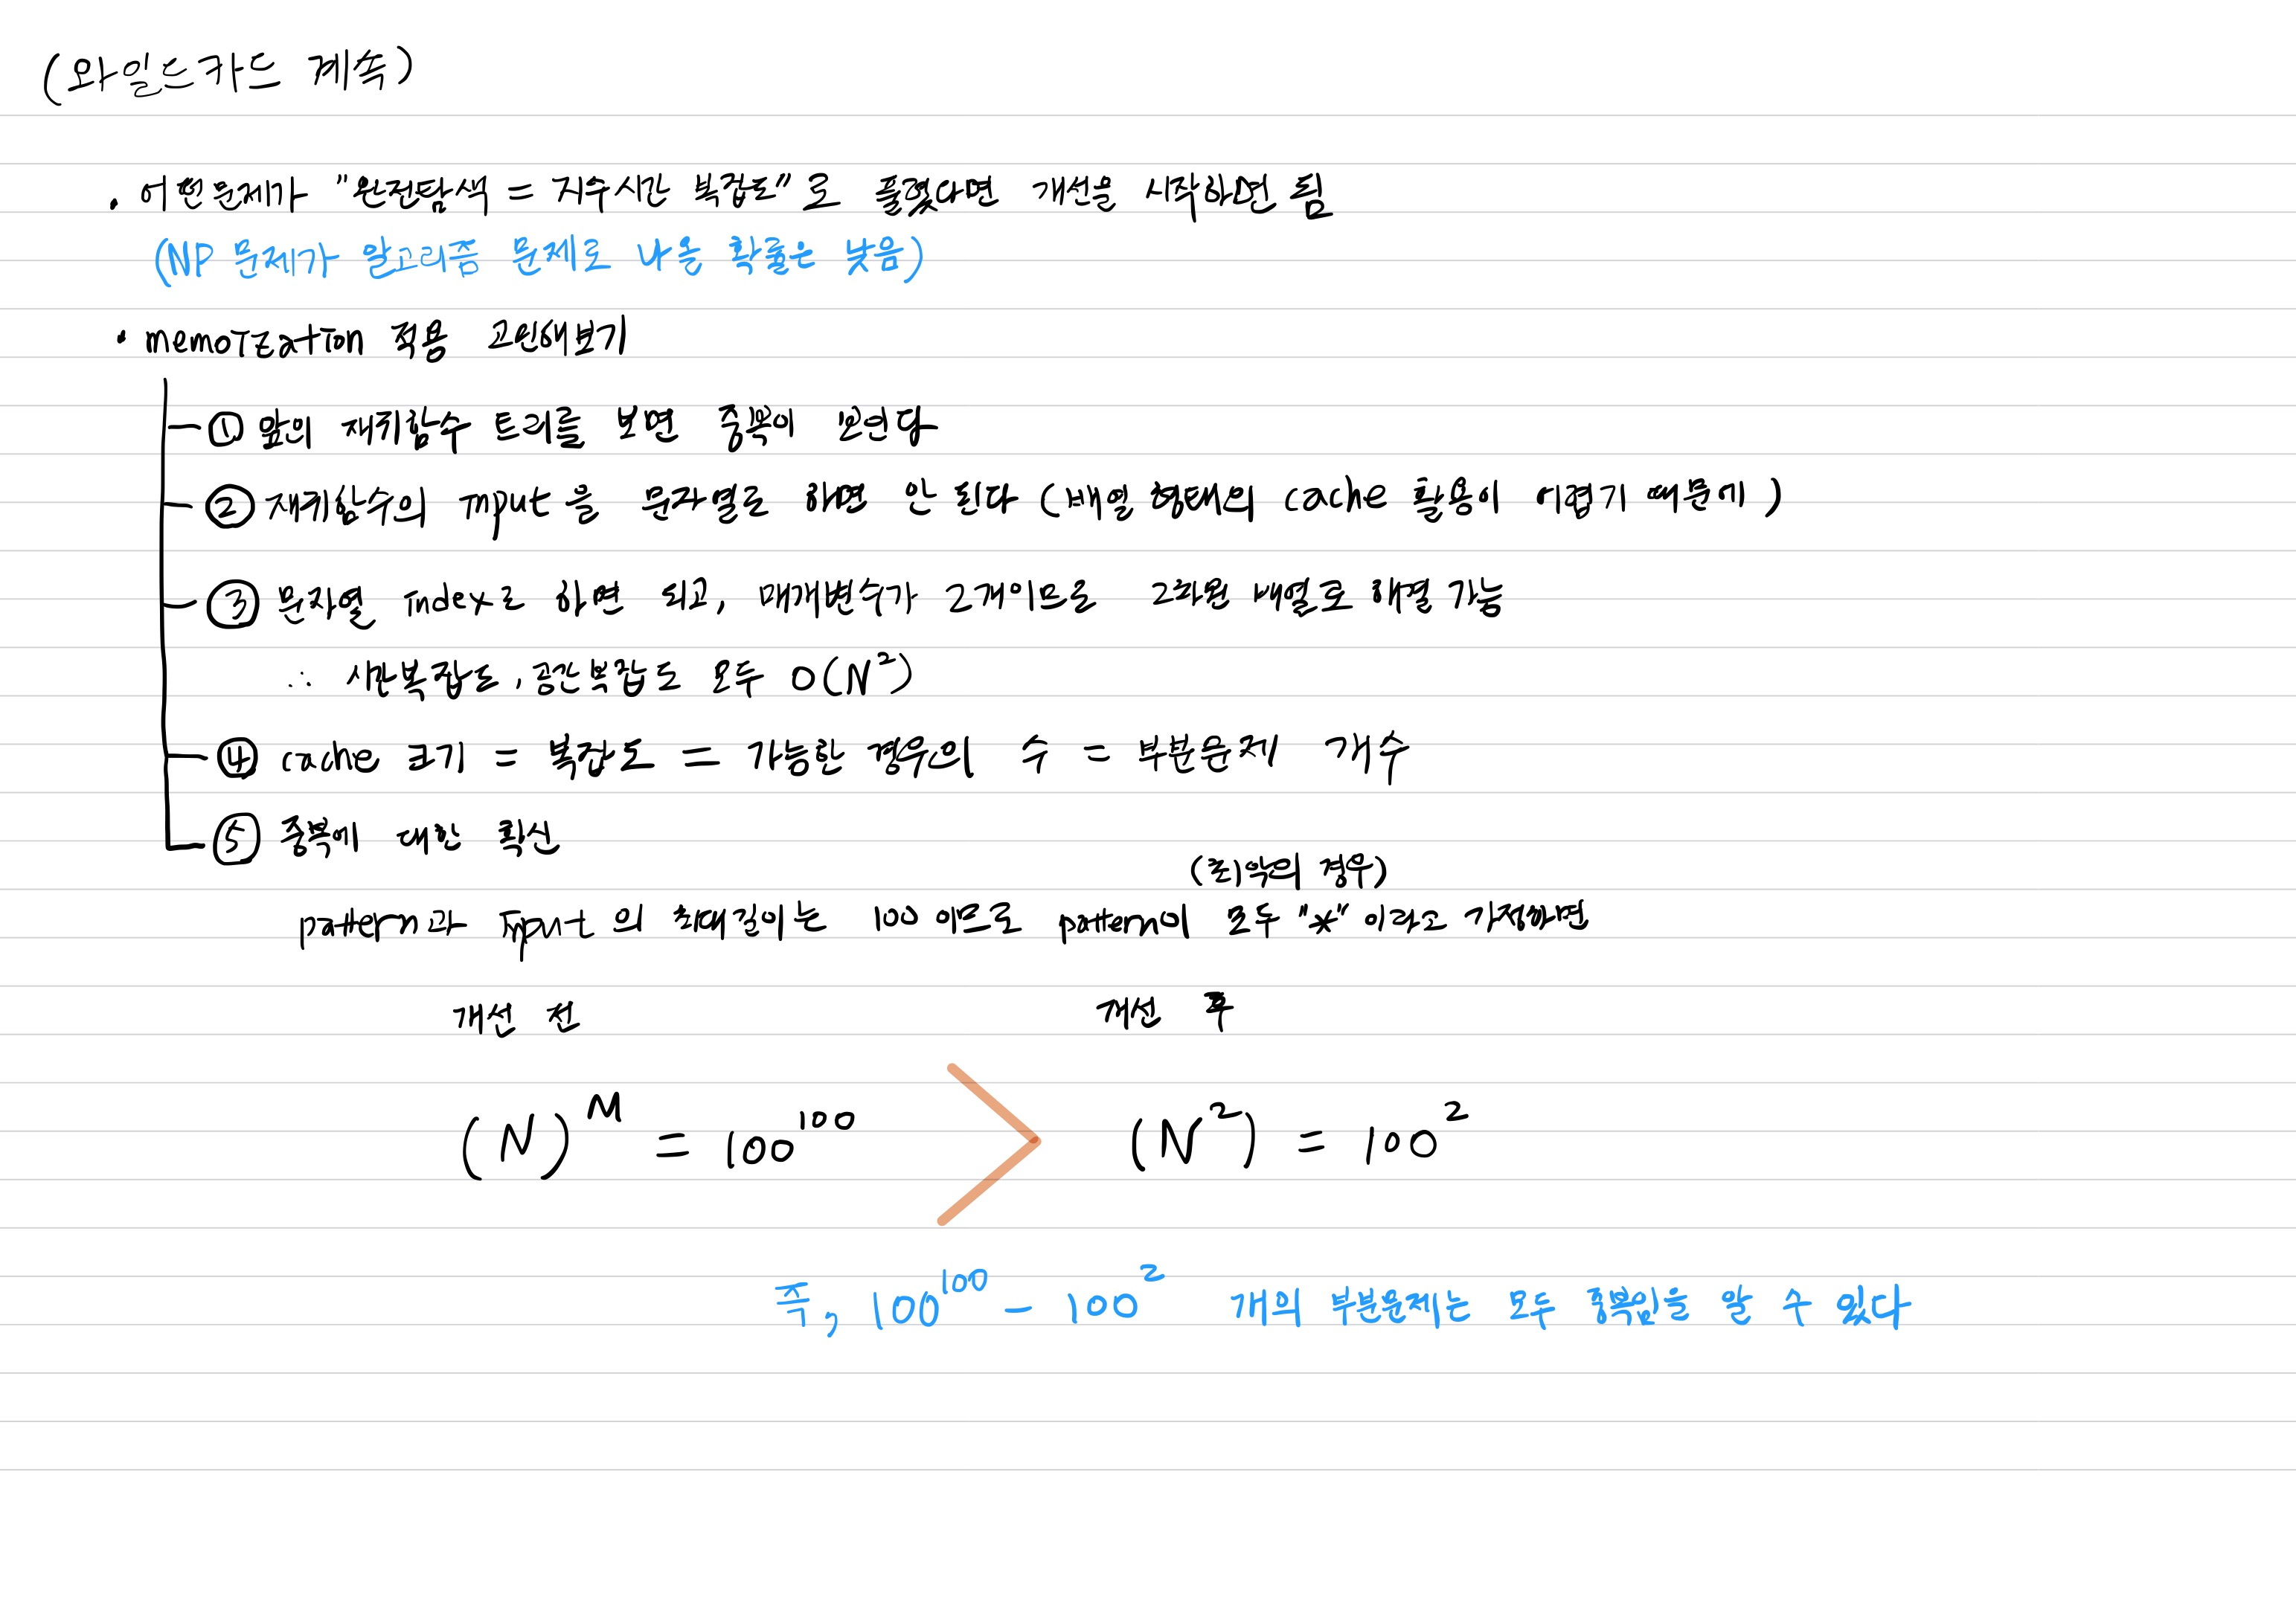 (와일드카드 계속)
• 어떤문제가 "완전탐색 = 지수시간 복잡도"로 풀렸다면 개선을 시작하면 됨
(NP 문제가 알고리즘 문제로 나올 확률은 낮음)
• memoization 적용 고민해보기
① 앞의 재귀함수 트리를 보면 중복이 보인다
② 재귀함수의 input을 문자열로 하면 안 된다 (배열 형태의 cache 활용이 어렵기 때문에)
③ 문자열 index로 하면 되고, 매개변수가 2개이므로 2차원 배열로 해결 가능
∴ 시간복잡도, 공간복잡도 모두 O(N²)
④ cache 크기 = 복잡도 = 가능한 경우의 수 = 부분문제 개수
⑤ 중복에 대한 확신
(최악의 경우)
pattern과 input의 최대길이는 100이므로 pattern이 모두 "*"이라고 가정하면
개선 전 개선 후
(N)^M = 100^100 > (N²) = 100²
즉, 100^100 - 100² 개의 부분문제는 모두 중복임을 알 수 있다